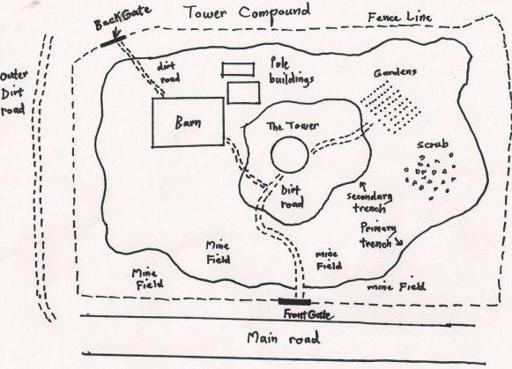 BackGate
Tower Compound
Fence Line
Outer
Dirt
road
dirt
road
Pole
buildings
Gardens
Barn
The Tower
Scrub
Dirt
road
Secondary
trench
Primary
trench
Mine
Field
mine
Field
Mine
Field
mine Field
Front Gate
Main road